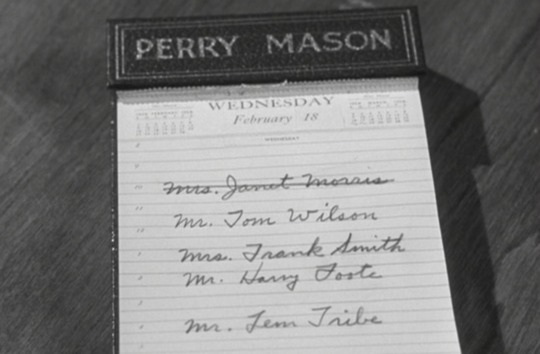 PERRY MASON
WEDNESDAY
February 18
WEDNESDAY
Mrs. Janet Morris
Mr. Tom Wilson
Mrs. Frank Smith
Mr. Harry Foote
Mr. Lem Tribe